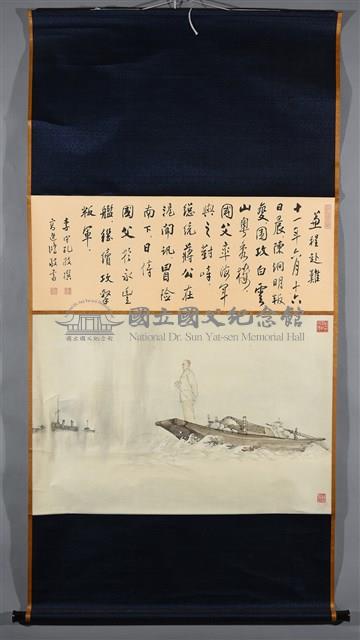 蒹程赴難
十一年六月十六
日晨陳炯明叛
變圍攻白雲
山粵秀樓
國父率海軍
與之對峙
總統蔣公在
滬聞訊冒險
南下日侍
國父於永豐
艦繼續攻擊
叛軍
李守孔敬撰
國立國父紀念館
National Dr. Sun Yat-sen Memorial Hall